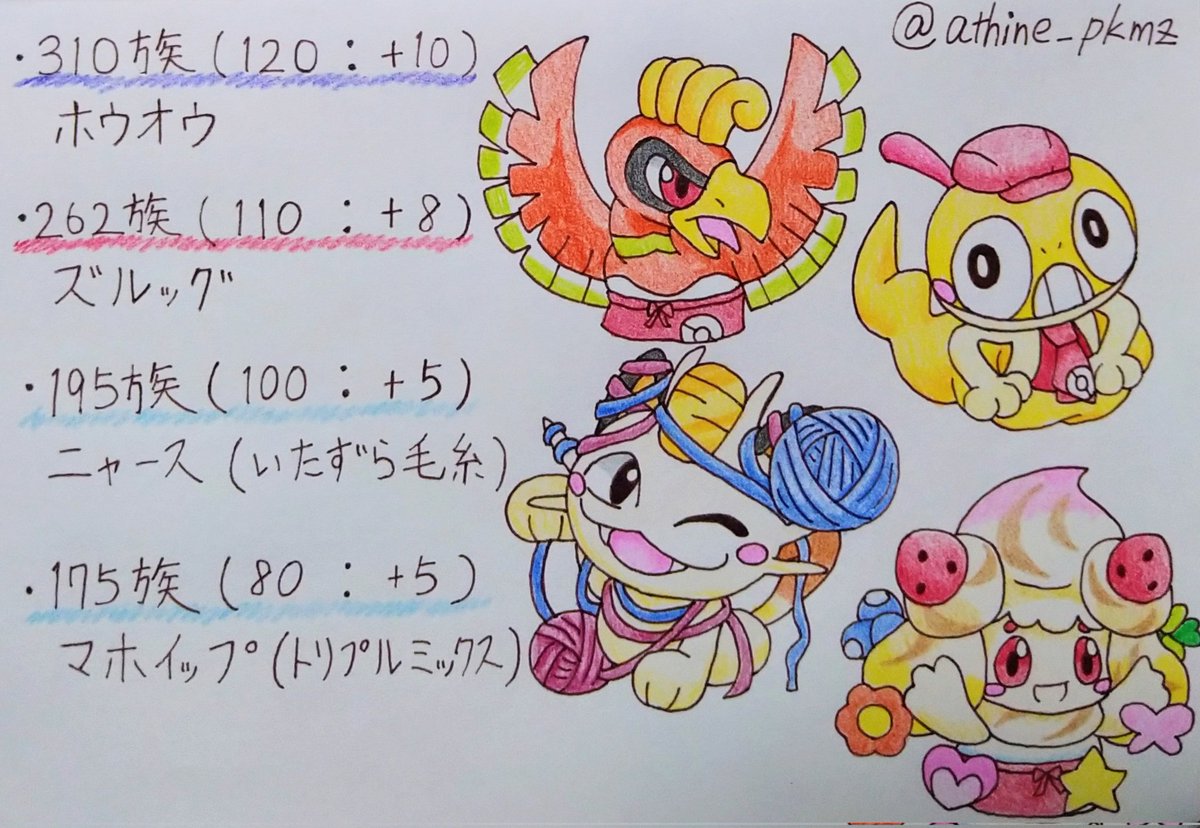 @athine_pkmz
・310族(120:+10)
ホウオウ
・262族(110:+8)
ズルッグ
・195族(100:+5)
ニャース(いたずら毛糸)
・175族(80:+5)
マホイップ(トリプルミックス)